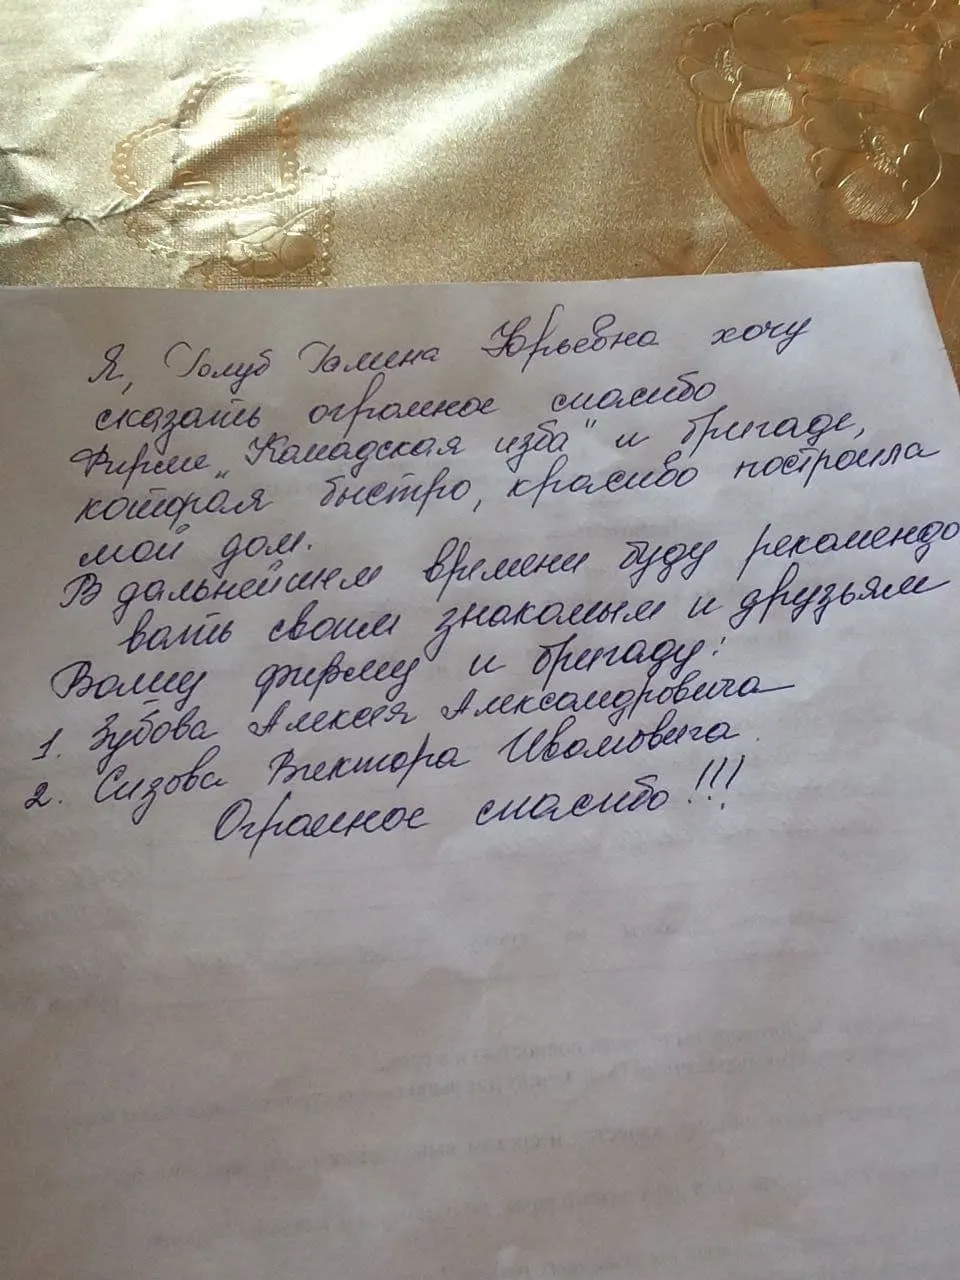 Я, Голуб Галина Юрьевна хочу
сказать огромное спасибо
Фирме „Канадская изба" и бригаде,
которая быстро, красиво построила
мой дом.
В дальнейшем времени буду рекомендо
вать своим знакомым и друзьям
Вашу фирму и бригаду:
1. Зубова Алексея Александровича
2. Сизова Виктора Ивановича.
Огромное спасибо!!!